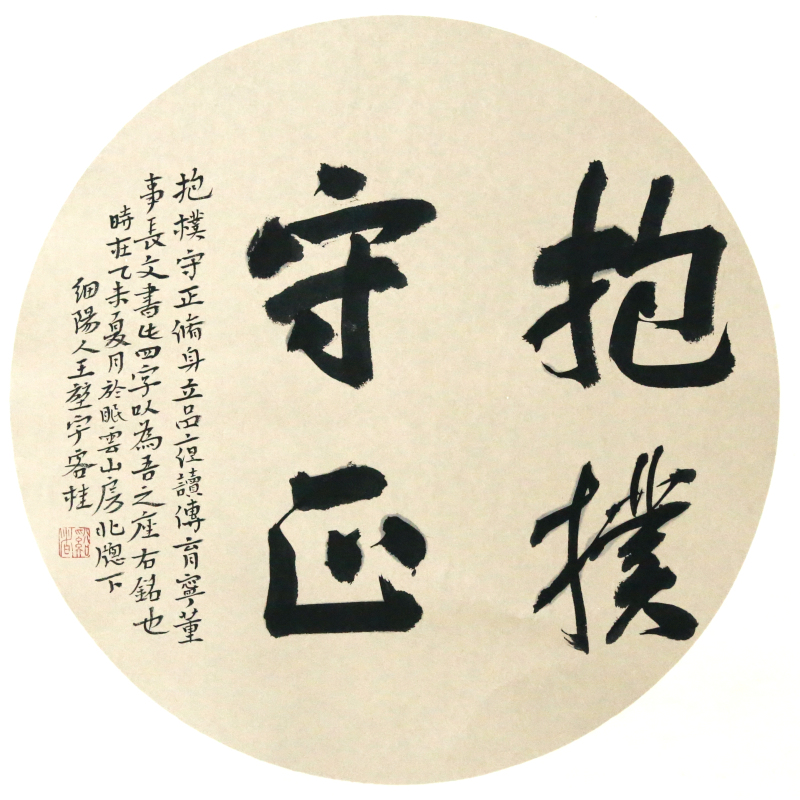 抱撲
守正
抱樸守正脩身立品讀傳育寧董
事長文書此四字以為吾之座右銘也
時在乙未夏月於眠雲山房北窗下
細陽人王堃字容桂